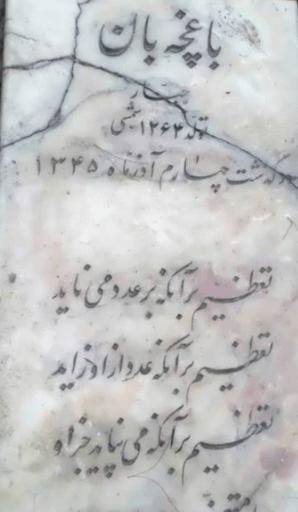 باغچه بان
جبار
تولد ۱۲۶۴ شمسی
درگذشت چهارم آذرماه ۱۳۴۵
تعظیم بر آنکه بر عدد می ناید
تعظیم بر آنکه عدد از او زاید
تعظیم بر آنکه می نپاید جز او